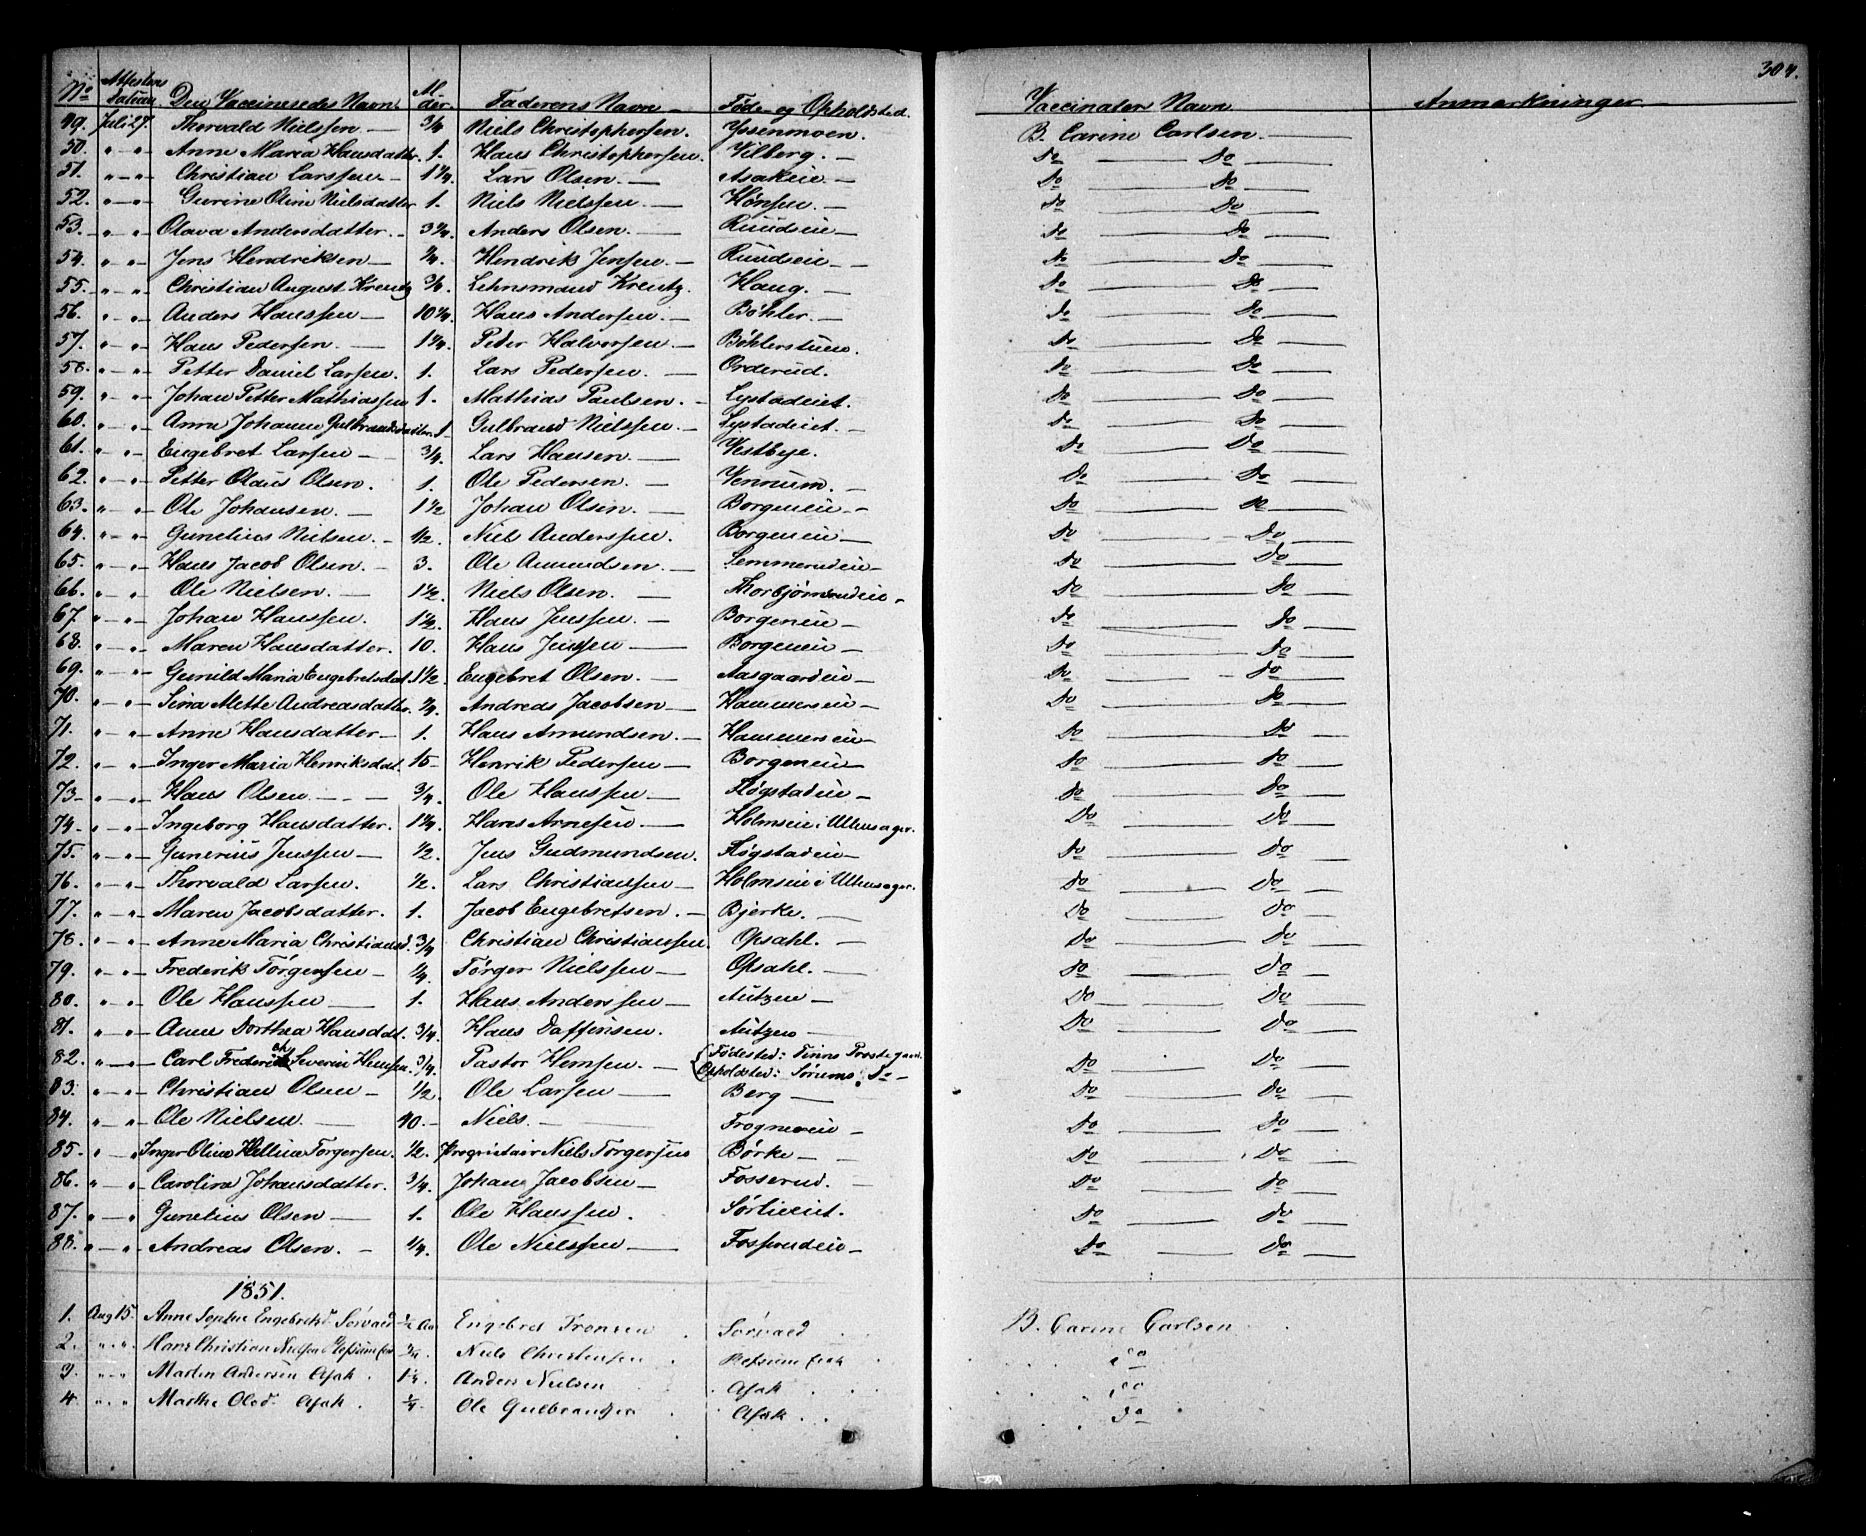 304.
No Attestens Datum Den Vaccineredes Navn. Alder. Faderens Navn Føde- og Opholdsted. Vaccinators Navn Anmærkninger
49. Juli 27. Thorvald Nielssen 3/4 Niels Christophersen. Yssenmoen. B. Carine Carlsen.
50. " " Anne Maria Hansdatter. 1. Hans Christophersen. Vilberg. Do Do
51. " " Christian Larssen 1 1/4. Lars Olsen. Asakeie Do Do
52. " " Gurine Oline Nielsdatter 1. Niels Nielssen. Hønsen. Do Do
53. " " Olava Andersdatter. Anders Olsen. Ruudseie Do Do
54. " " Jens Hendriksen Hendrik Jenssen Ruudseie Do Do
55. " " Christian August Kreutz Lehnsmand Kreutz. Haug. Do Do
56. " " Anders Hanssen Hans Andersen. Bøhler. Do Do
57. " " Hans Pedersen. 1 1/4. Peder Halvorsen. Bøhlerstuen. Do Do
58. " " Petter Daniel Larssen. 1. Lars Pedersen. Orderud. Do Do
59. " " Johan Petter Mathiassen 1. Mathias Paulsen. Lystadeiet. Do Do
60. " " Anne Johanne Gulbrandsdatter. 1 Gulbrand Nielssen. Lystadeiet. Do Do
61. " " Engebret Larsen 3/4. Lars Hansen. Vestbye. Do Do
62. " " Petter Olaus Olsen. 1. Ole Pedersen. Vennum. Do Do
63. " " Ole Johansen. 1 1/2 Johan Olsen. Borgeneie Do Do
64. " " Gunelius Nielsen. 1/2. Niels Anderssen. Borgeneie Do Do
65. " " Hans Jacob Olsen. 3. Ole Amundsen. Lemmerudeie Do Do
66. " " Ole Nielsen. 1 1/2. Niels Olsen. Thorbjørnsrudeie Do Do
67. " " Johan Hanssen. 1 1/2. Hans Jenssen Borgeneie Do Do
68. " " Maren Hansdatter. 10. Hans Jenssen Borgeneie Do Do
69. " " Gunild Maria Engebretsdat. 1 1/2. Engebret Olsen. Aasgaardeie Do Do
70. " " Sina Mette Andreasdatter. Andreas Jacobsen Hammerseie Do Do
71. " " Anne Hansdatter 1. Hans Amundsen. Hammerseie Do Do
72. " " Inger Maria Henriksdat. 15 Henrik Pedersen Borgeneie Do Do
73 " " Hans Olsen 3/4. Ole Hanssen Fløgstadeie Do Do
74 " " Ingeborg Hansdatter. 1 1/4. Hans Arnesen Holmseie i Ullensager. Do Do
75. " " Gunerius Jenssen 1/2. Jens Gudmundsen. Fløgstadeie Do Do
76. " " Thorvald Larsen. 1/2. Lars Christiansen Holmseie i Ullensager. Do Do
77. " " Maren Jacobsdatter. 1. Jacob Engebretsen. Bjerke. Do Do
78. " " Anne Maria Christiansd. 3/4 Christian Christianssen. Opsahl. Do Do
79. " " Frederik Tørgersen 1/4. Tørger Nielssen Opsahl. Do Do
80. " " Ole Hanssen 1. Hans Anderssen Autzen Do Do
81. " " Anne Dorthea Hansdat. 3/4. Hans Daffinsen. Autzen Do Do
82. " " Carl Frederich Severin Hemsen. 3/4. Pastor Hemsen. { Fødested: Tinns Prostegaard.
Opholdsted: Sørums Do Do Do
83. " " Christian Olsen 1/2. Ole Larssen Berg Do Do
84. " " Ole Nielsen 40. Niels. Frogneeie Do Do
85. " " Inger Oline Helline Torgersen. 1/2. Proprietair Niels Torgersen Børke Do Do
86. " " Carolina Johansdatter. 3/4. Johan Jacobsen Fosserud. Do Do
87. " " Gunelius Olsen 1. Ole Hanssen. Sørlieeiet. Do Do
88. " " Andreas Olsen. 1/4. Ole Nielssen Fosserudeie Do Do
1851.
1. Aug 15. Anne Sophie Engebretsd Sørvaed 1/2 Aar Engebret Tronsen Sørvaed B. Carine Carlsen
2. " " Hans Christian Nielsen Niels Christensen do
3. " " Martin Andersen Asak. Anders Nielsen Asak do
4. " " Marthe Olsd. Asak. Ole Gulbrandsen Asak do